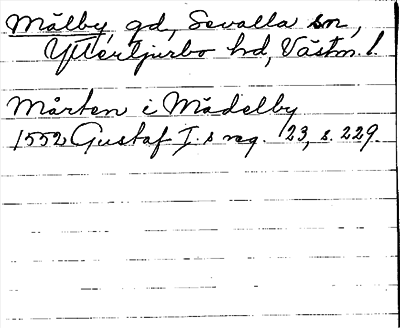 Målby, gd, Sevalla sn,
Yttertjurbo hd, Västm. l.
Mårten i Mädelby
1552 Gustaf I:s reg. 23, s. 229.